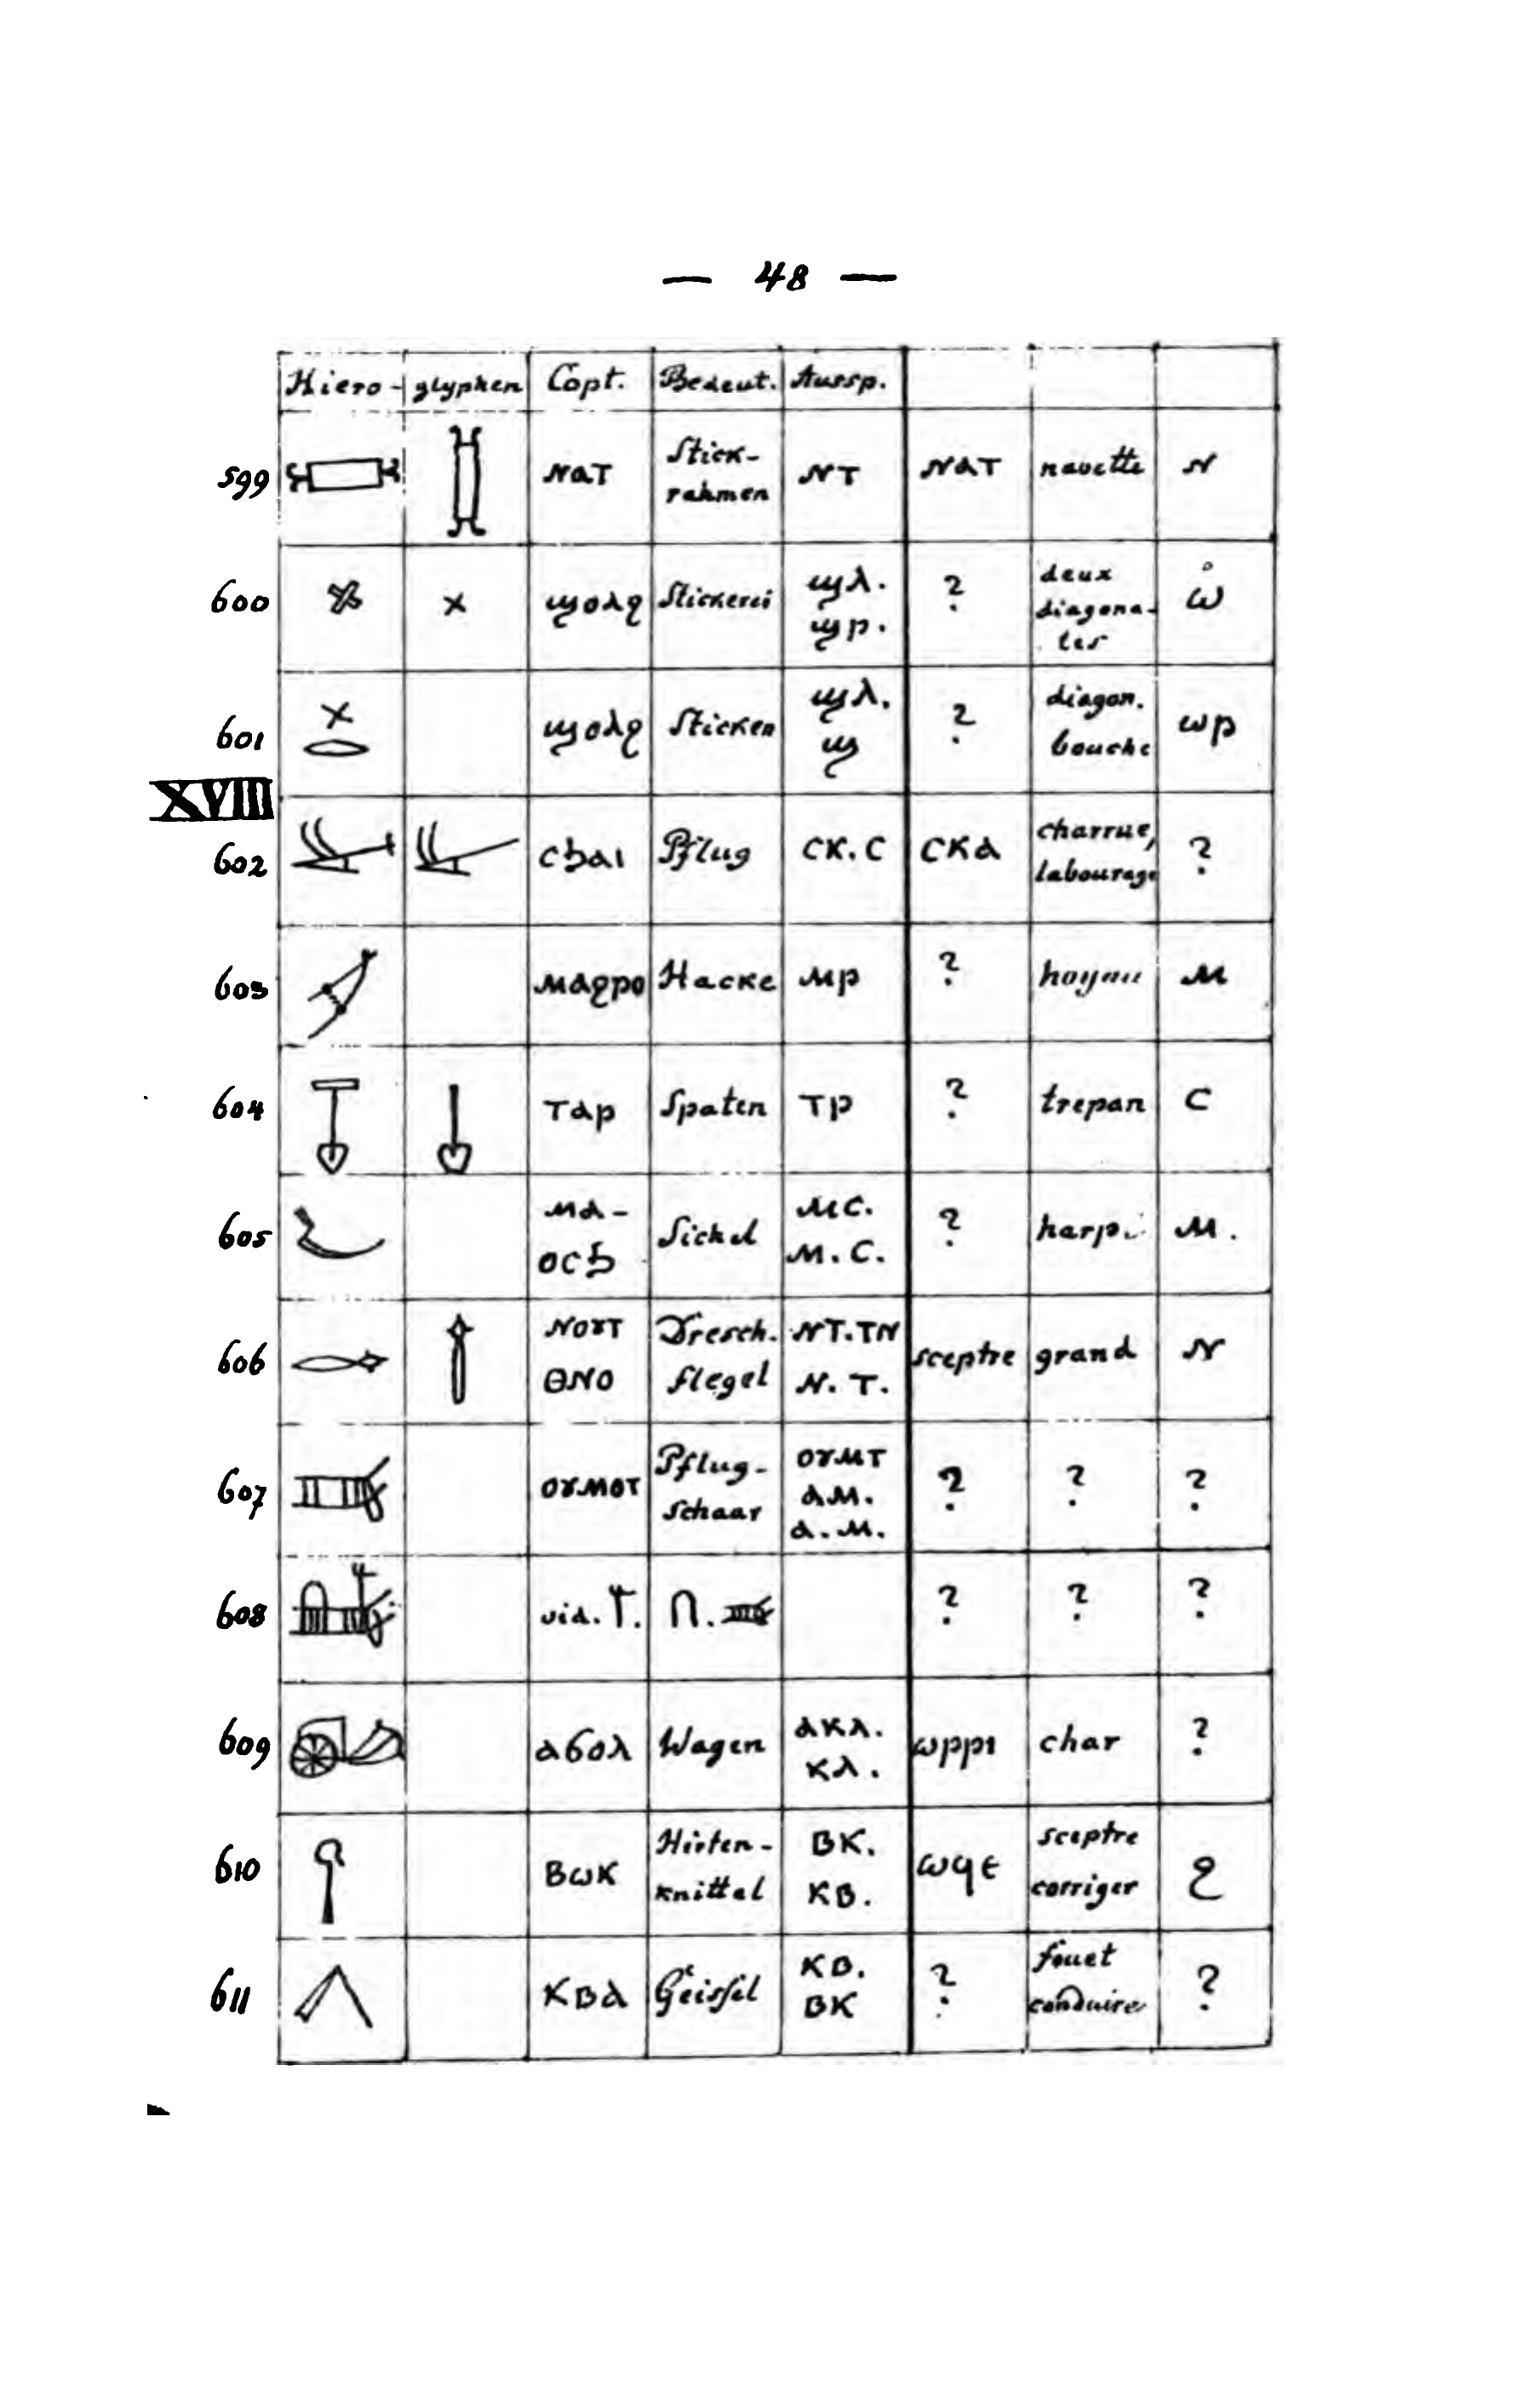 — 48 —
Hiero- glyphen Copt. Bedeut. Aussp.
599 ⲛⲁⲧ Stick-rahmen ⲛⲧ ⲛⲁⲧ navette ⲛ
600 ϣⲟⲗϩ Stickerei ϣⲗ. ϣⲣ. ? deux diagona-les ω̊
601 ϣⲟⲗϩ Sticken ϣⲗ. ϣ ? diagon. bouche ⲱⲣ
XVIII
602 ⲥϧⲁⲓ Pflug ⲥⲕ.ⲥ ⲥⲕⲁ charrue, labourage ?
603 ⲙⲁϩⲣⲟ Hacke ⲙⲣ ? hoyau ⲙ
604 ⲧⲁⲣ Spaten ⲧⲣ ? trepan ⲥ
605 ⲙⲁ-ⲟⲥϧ Sichel ⲙⲥ. ⲙ.ⲥ. ? ⲙ.
606 ⲛⲟⲩⲧ ⲑⲛⲟ Dresch. flegel ⲛⲧ.ⲧⲛ ⲛ.ⲧ. sceptre grand ⲛ
607 ⲟⲩⲙⲟⲧ Pflug-schaar ⲟⲩⲙⲧ ⲁⲙ. ⲁ.ⲙ. ? ? ?
608 vid. ? ? ?
609 ⲁϭⲟⲗ Wagen ⲁⲕⲗ. ⲕⲗ. ⲱⲣⲣⲓ char ?
610 ⲃⲱⲕ Hirten-knittel ⲃⲕ. ⲕⲃ. ⲱϥⲉ sceptre corriger ϩ
611 ⲕⲃⲁ Geissel ⲕⲃ. ⲃⲕ ? fouet conduire ?